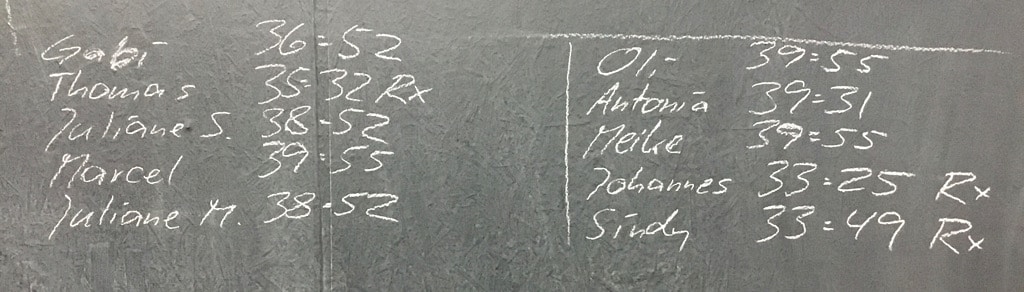 Gabi 36:52
Thomas 35:32 Rx
Juliane S. 38:52
Marcel 39:55
Juliane M. 38:52
Oli 39:55
Antonia 39:31
Meike 39:55
Johannes 33:25 Rx
Sindy 33:49 Rx